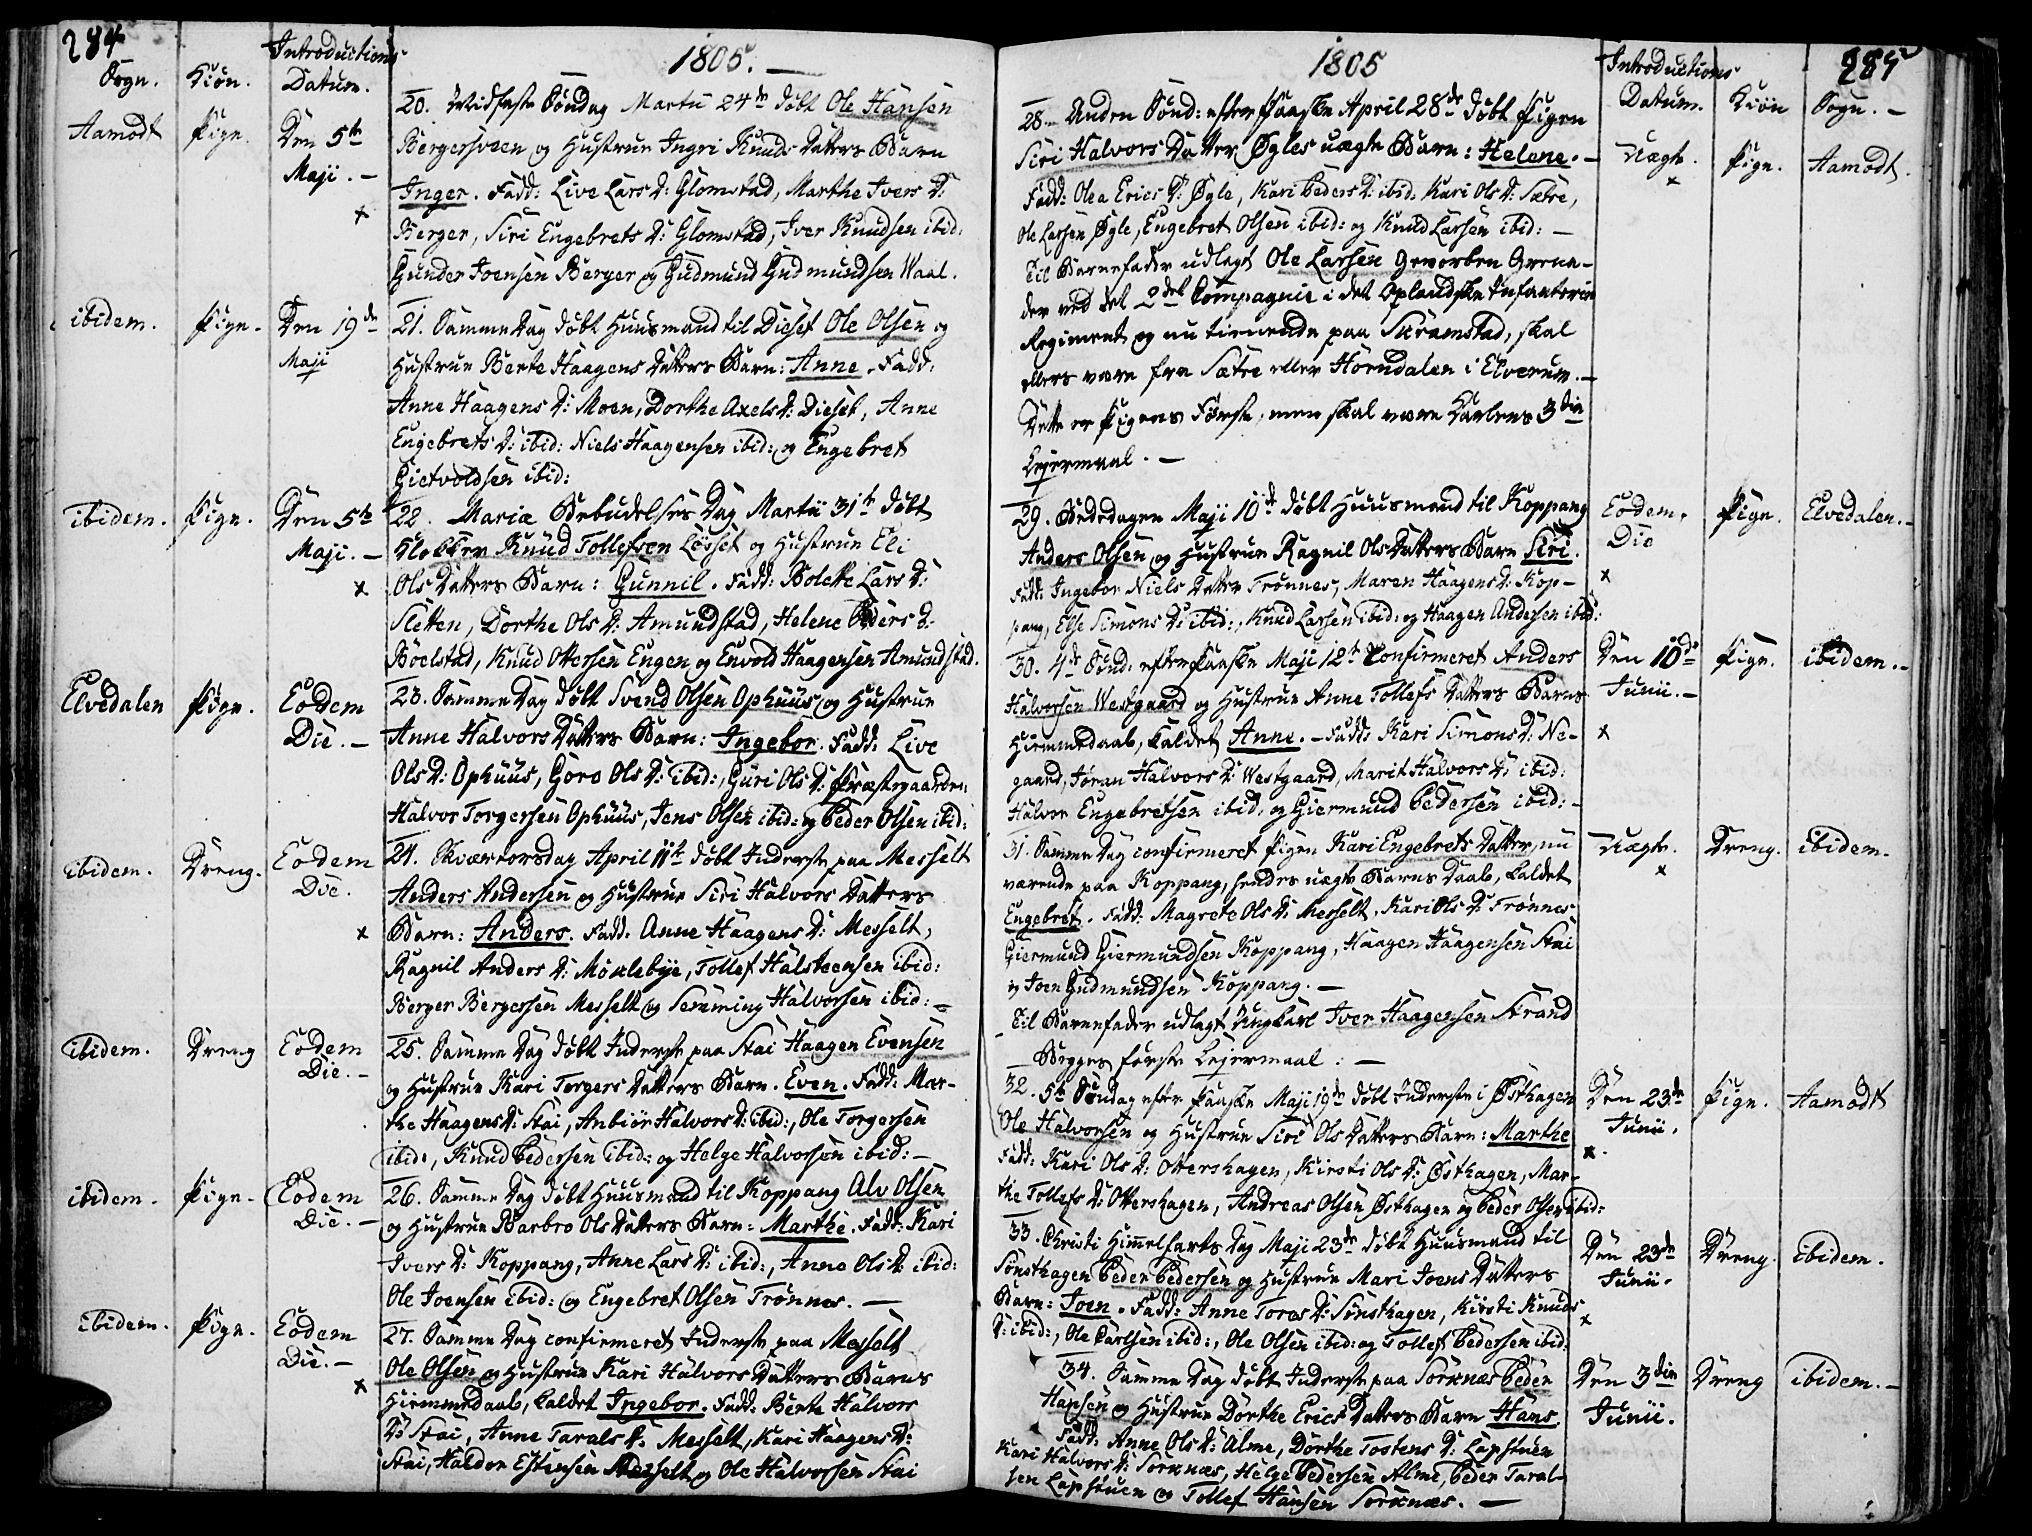 284
Sogn. Kiøn. Introductions Datum.
1805. —
Aamodt Pign. Den 5te Maji. —
20. Midfaste Søndag Martii 24de døbt Ole Hansen
Bergersveen og Hustrue Ingri Knuds Datters Barn
Inger. Fadd: Live Lars D: Glomstad, Marthe Ivers D:
Berger, Siri Engebrets D: Glomstad, Iver Knudsen ibid:
Gunder Joensen Berger og Gudmund Gudmundsen Waal.
ibidem. Pign. Den 19de Maji
21. Samme Dag døbt Huusmand til Dieset Ole Olsen og
Hustrue Berte Haagens Datters Barn: Anne. Fadd:
Anne Haagens D: Moen, Dorthe Axels D: Dieset, Anne
Engebrets D: ibid: Niels Haagensen ibid: og Engebret
Gietvoldsen ibid:
ibidem. Pign. Den 5te Maji. —
22. Mariæ Bebudelses Dag Martii 31te døbt
Klokker Knud Tollefsen Løsset og Hustrue Eli
Ols Datters Barn: Gunnil. Fadd: Bolette Lars D:
Sletten, Dorthe Ols D: Amundstad, Helene Peders D:
Bøelstad, Knud Ottersen Engen og Envold Haagensen Amundstad.
Elvedalen Pign. Eodem Die. —
23. Samme Dag døbt Svend Olsen Ophuus og Hustrue
Anne Halvors Datters Barn: Ingebor. Fadd: Live
Ols D: Ophuus, Goro Ols D: ibid:, Guri Ols D: Præstegaarden.
Halvor Torgersen Ophuus, Jens Olsen ibid: og Peder Olsen ibid:
ibidem. Dreng. Eodem Die.
24. Skiærtorsdag April 11te døbt Inderste paa Messelt
Anders Andersen og Hustrue Siri Halvors Datters
Barn: Anders. Fadd: Anne Haagens D: Messelt,
Ragnil Anders D: Møklebye, Tollef Halsteensen ibid:
Berger Bergersen Messelt og Semming Halvorsen ibid: —
ibidem. Dreng Eodem Die. —
25. Samme Dag døbt Inderste paa Stai Haagen Evensen
og Hustrue Kari Torgers Datters Barn. Even. Fadd: Mar-
the Haagens D: Stai, Anbiør Halvors D: ibid:, Ole Torgersen
ibid:, Knud Pedersen ibid: og Helge Halvorsen ibid: —
ibidem. Pign. Eodem Die. —
26. Samme Dag døbt Huusmand til Koppang Alv Olsen
og Hustrue Barbro Ols Datters Barn: Marthe. Fadd: Kari
Ivers D: Koppang, Anne Lars D: ibid:, Anne Ols D: ibid:
Ole Joensen ibid: og Engebret Olsen Trønnes. —
ibidem. Pign. Eodem Die. —
27. Samme Dag confirmeret Inderste paa Messelt
Ole Olsen og Hustrue Kari Halvors Datters Barns
Hiemmedaab, kaldet Ingebor. Fadd: Berte Halvors
D: Stai, Anne Tarals D: Messelt, Kari Haagens D:
Stai, Haldor Estensen Messelt og Ole Halvorsen Stai
285
1805
Introductions Datum. Kiøn Sogn. —
28. Anden Sønd: efter Paaske April 28de døbt Pigen
Siri Halvors Datter Øgles uægte Barn: Helene. —
Uægte. Pign. Aamodt.
Fadd: Olea Erics D: Øgle, Kari Peders D: ibid: Kari Ols D: Sætre,
Ole Larsen Øgle, Engebret Olsen ibid: og Knud Larsen ibid: —
Til Barnefader udlagt Ole Larsen Geworben Grena-
der ved det 2det Compagnie i det Oplandske Infanterie
Regiment og nu tienende paa Skramstad, skal
ellers være fra Sætre eller Horndalen i Elverum. —
Dette er Pigens Første, men skal være Karlens 3die
Lejermaal. —
29. Bededagen Maji 10de døbt Huusmand til Koppang
Anders Olsen og Hustrue Ragnil Ols Datters Barn Siri.
Eodem Die Pign. Elvedalen. —
Fadd: Ingebor Niels Datter Trønnes, Maren Haagens D: Kop-
pang, Else Simons D: ibid:, Knud Larsen ibid: og Haagen Andersen ibid:
30. 4de Sønd: efter Paaske Maji 12te confirmeret Anders
Halvorsen Westgaard og Hustrue Anne Tollefs Datters Barns
Den 10de Junii. — Pign. ibidem. —
Hiemmedaab, kaldet Anne. — Fadd: Kari Simons D: Ne-
gaard, Jøran Halvors D: Westgaard, Marit Halvors D: ibid:
Halvor Engebretsen ibid. og Giermund Pedersen ibid: —
31. Samme Dag confirmeret Pigen Kari Engebrets Datter, nu
værende paa Koppang, hendes uægte Barns Daab, kaldet
Uægte. Dreng. ibidem.
Engebret. Fadd: Magrete Ols D: Messelt, Kari Ols D: Trønnes
Giermund Giermundsen Koppang, Haagen Haagensen Stai
og Joen Gudmundsen Koppang. —
Til Barnefader udlagt Ungkarl Iver Haagensen Strand
Begges første Lejermaal: —
32. 5te Søndag efter Paaske Maji 19de døbt Inderste i Østhagen
Ole Halvorsen og Hustrue Siri Ols Datters Barn: Marthe
Den 23de Junii. Pign. Aamodt
Fadd: Kari Ols D: Ottershagen, Kirsti Ols D: Østhagen, Mar-
the Tollefs D: Ottershagen, Andreas Olsen Østhagen og Peder Olsen ibid:
33. Christi Himmelfarts Dag Maji 23de døbt Huusmand til
Sønsthagen Peder Pedersen og Hustrue Mari Joens Datters
Den 23de Junii. Dreng. ibidem.
Barn: Joen. Fadd: Anne Tores D: Sønsthagen, Kirsti Knuds
D: ibid:, Ole Carlsen ibid:, Ole Olsen ibid: og Tollef Pedersen ibid:
34. Samme Dag døbt Inderste paa Sorknæs Peder
Hansen og Hustrue Dorthe Erics Datters Barn Hans.
Den 3die Junii. Dreng ibidem. —
Fadd: Anne Ols D: Alme, Dorthe Tostens D: Lapstuen
Kari Halvors D: Sorknæs, Helge Pedersen Alme, Peder Taral-
sen Lapstuen og Tollef Hansen Sorknæs. —